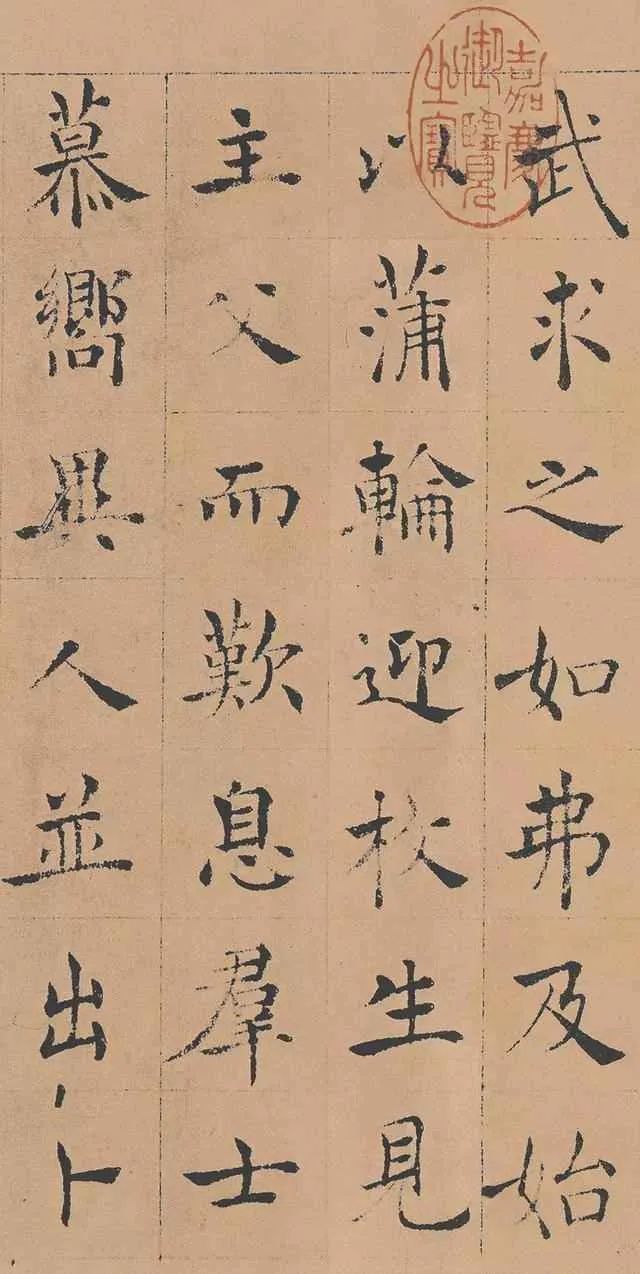 嘉慶御覽之寶
武求之如弗及始
以蒲輪迎枚生見
主父而歎息羣士
慕嚮異人並出卜